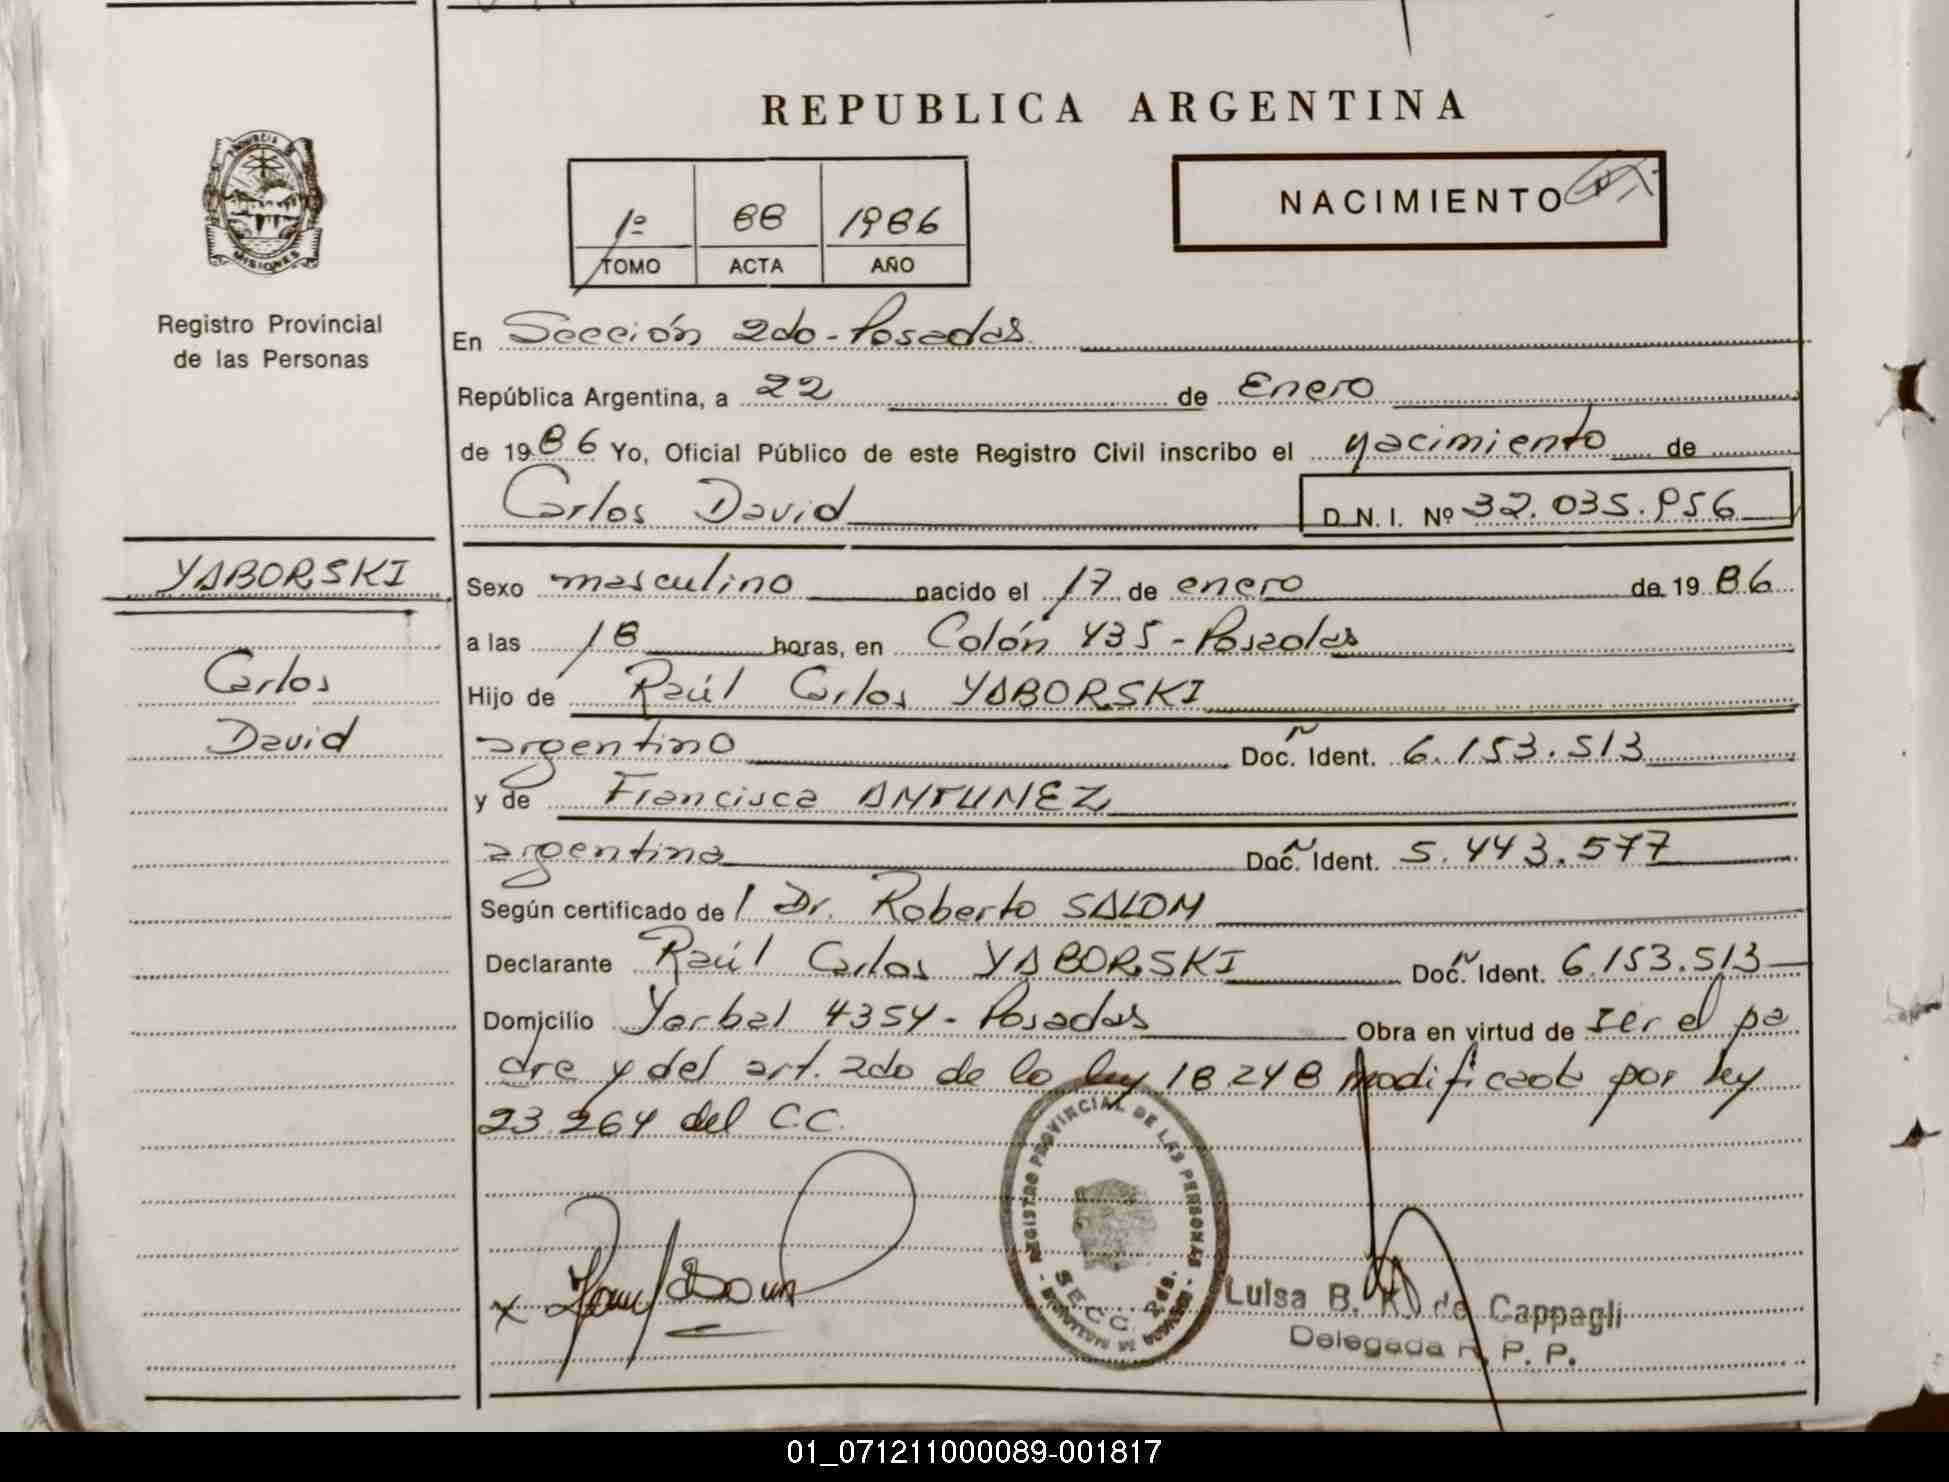 REPUBLICA ARGENTINA
PROVINCIA DE
MISIONES
Registro Provincial
de las Personas
1º 88 1986
TOMO ACTA AÑO
NACIMIENTO
En Sección 2da - Posadas
República Argentina, a 22 de Enero
de 1986 Yo, Oficial Público de este Registro Civil inscribo el nacimiento de
Carlos David D.N.I. Nº 32.035.956
YABORSKI
Carlos
David
Sexo masculino nacido el 17 de enero de 1986
a las 18 horas, en Colón 435 - Posadas
Hijo de Raúl Carlos YABORSKI
argentino Doc. Ident. 6.153.513
y de Francisca ANTUNEZ
argentina Doc. Ident. 5.443.577
Según certificado de / Dr. Roberto SALOM
Declarante Raúl Carlos YABORSKI Doc. Ident. 6.153.513
Domicilio Yerbal 4354 - Posadas Obra en virtud de ser el pa
dre y del art. 2do de la ley 18248 modificada por ley
23.264 del C.C.
REGISTRO PROVINCIAL DE LAS PERSONAS
SECC. 2da.
Luisa B. de Cappagli
Delegada R. P. P.
01_071211000089-001817